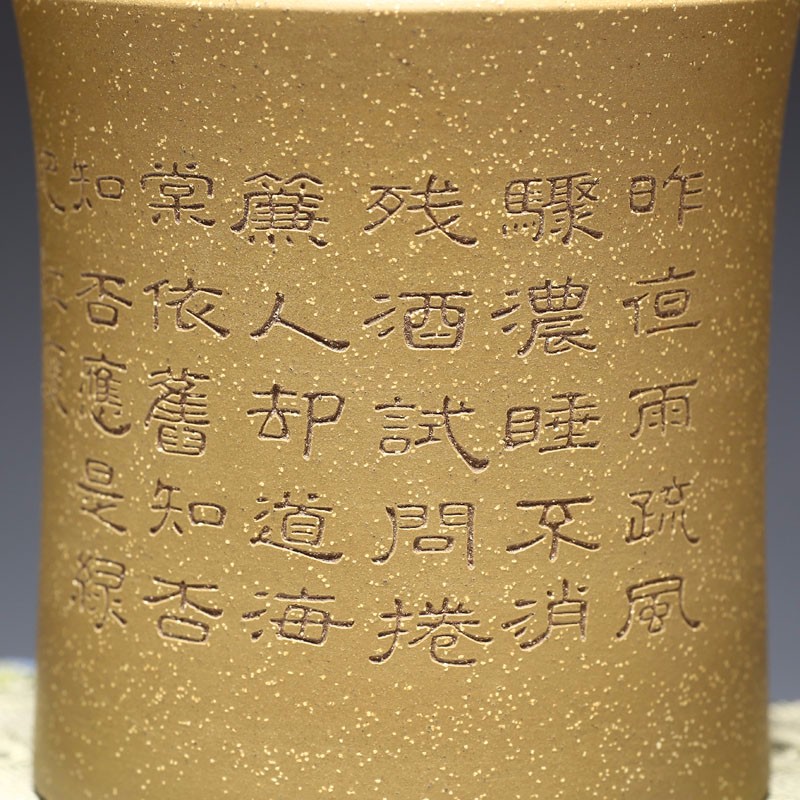 昨夜雨疏風
驟濃睡不消
残酒試問捲
簾人却道海
棠依舊知否
知否應是綠